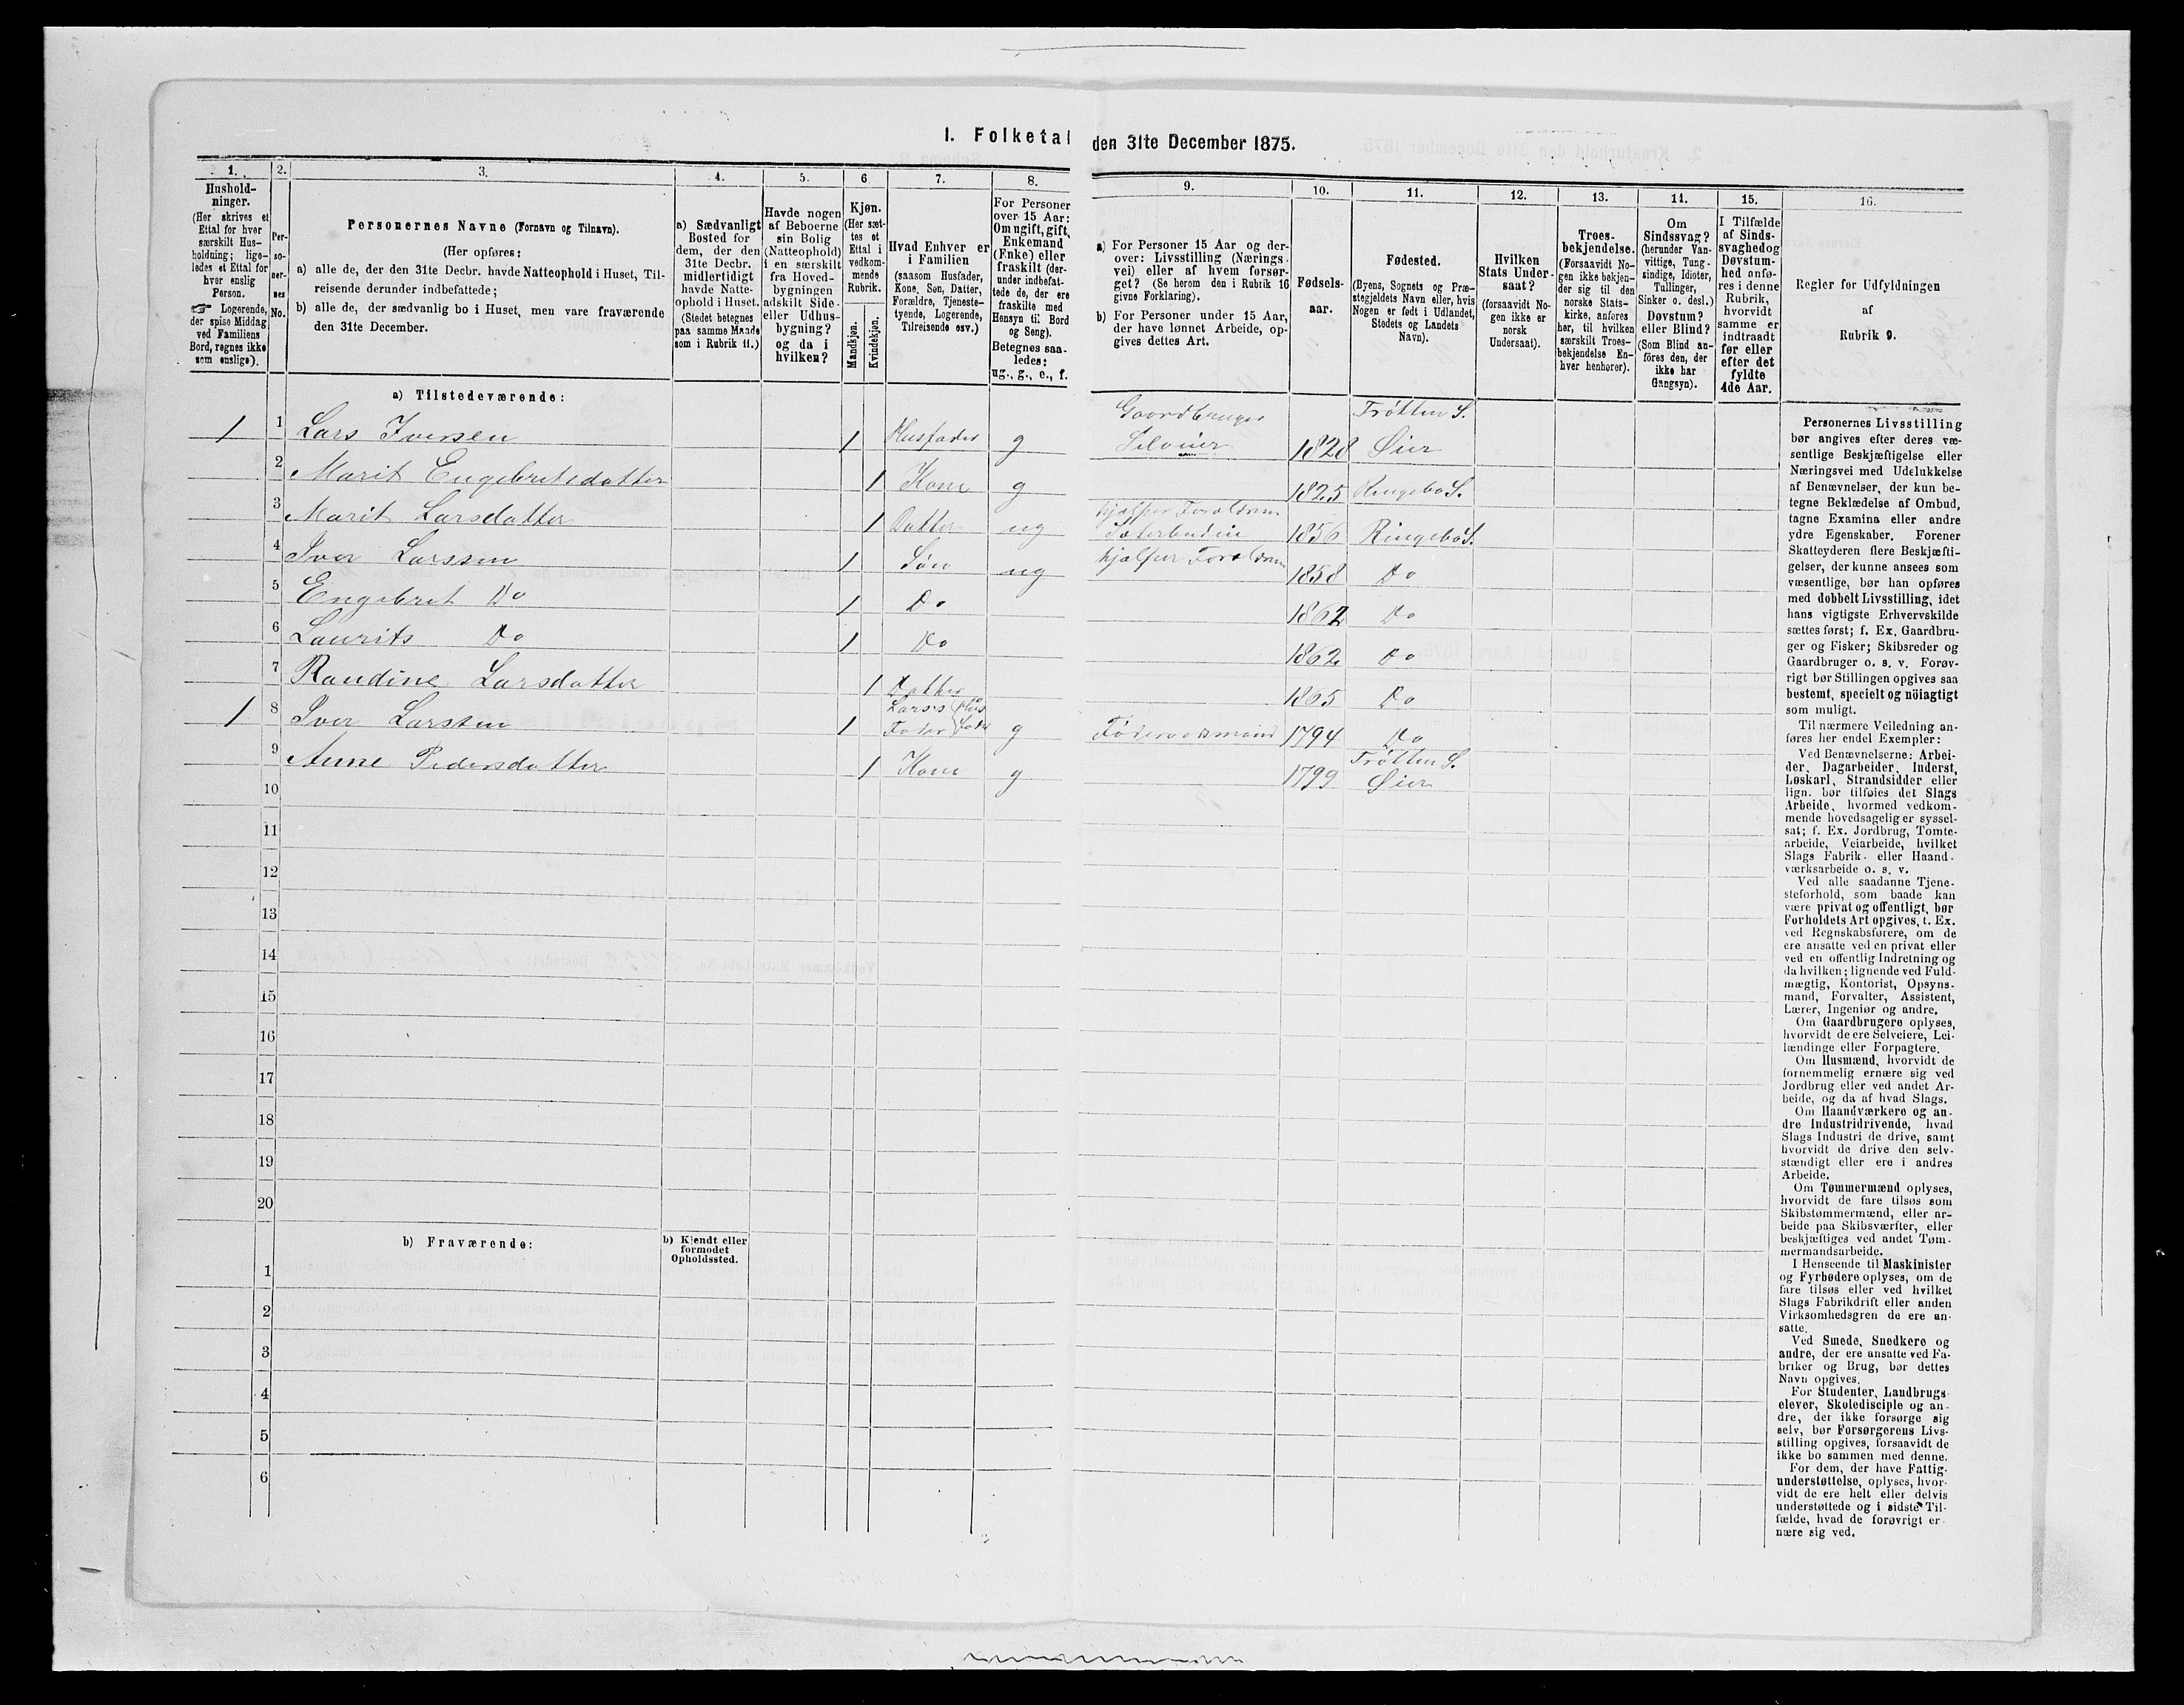 I. Folketal den 31te December 1875.
1.
Hushold-
ninger.
(Her skrives et
Ettal for hver
særskilt Hus-
holdning; lige-
ledes et Ettal for
hver enslig
Person.
☞ Logerende,
der spise Middag
ved Familiens
Bord, regnes ikke
som enslige).
2.
Per-
so-
ner-
nes
No.
3.
Personernes Navne (Fornavn og Tilnavn).
(Her opføres:
a) alle de, der den 31te Decbr. havde Natteophold i Huset, Til-
reisende derunder indbefattede;
b) alle de, der sædvanlig bo i Huset, men vare fraværende
den 31te December.
4.
a) Sædvanligt
Bosted for
dem, der den
31te Decbr.
midlertidigt
havde Natte-
ophold i Huset.
(Stedet betegnes
paa samme Maade
som i Rubrik 11.)
5.
Havde nogen
af Beboerne
sin Bolig
(Natteophold)
i en særskilt
fra Hoved-
bygningen
adskilt Side-
eller Udhus-
bygning?
og da i
hvilken?
6.
Kjøn.
(Her sæt-
tes et
Ettal i
vedkom-
mende
Rubrik.
Mandkjøn.
Kvindekjøn.
7.
Hvad Enhver er
i Familien
(saasom Husfader,
Kone, Søn, Datter,
Forældre, Tjeneste-
tyende, Logerende,
Tilreisende osv.)
8.
For Personer
over 15 Aar:
Om ugift, gift,
Enkemand
(Enke) eller
fraskilt (der-
under indbefat-
tede de, der ere
fraskilte med
Hensyn til Bord
og Seng).
Betegnes saa-
ledes:
ug., g., e., f.
9.
a) For Personer 15 Aar og der-
over: Livsstilling (Nærings-
vei) eller af hvem forsør-
get? (Se herom den i Rubrik 16
givne Forklaring).
b) For Personer under 15 Aar,
der have lønnet Arbeide, op-
gives dettes Art.
10.
Fødsels-
aar.
11.
Fødested.
(Byens, Sognets og Præ-
stegjeldets Navn eller, hvis
Nogen er født i Udlandet,
Stedets og Landets
Navn).
12.
Hvilken
Stats Under-
saat?
(forsaavidt No-
gen ikke er
norsk
Undersaat).
13.
Troes-
bekjendelse.
(Forsaavidt No-
gen ikke bekjen-
der sig til den
norske Stats-
kirke, anføres
her, til hvilken
særskilt Troes-
bekjendelse En-
hver henhører).
14.
Om
Sindssvag?
(herunder Van-
vittige, Tung-
sindige, Idioter,
Tullinger,
Sinker o. desl.)
Døvstum?
eller Blind?
(Som Blind an-
føres den, der
ikke har
Gangsyn).
15.
I Tilfælde
af Sinds-
svaghed og
Døvstum-
hed anfø-
res i denne
Rubrik,
hvorvidt
samme er
indtraadt
før eller
efter det
fyldte
4de Aar.
16.
Regler for Udfyldningen
af
Rubrik 9.
a) Tilstedeværende:
1 1 Lars Iversen 1 Husfader g Gaardbruger Selveier 1828 Trötten S. Øier
2 Marit Engebretsdatter 1 Kone g 1825 Ringebo S.
3 Marit Larsdatter 1 Datter ug hjælper Forældrene 1856 Ringebo S.
4 Iver Larssen 1 Søn ug hjælper Forældrene 1858 Do
5 Engebret Do 1 Do 1862 Do
6 Laurits Do 1 Do 1862 Do
7 Randine Larsdatter 1 Datter 1865 Do
1 8 Iver Larssen 1 Lars's Fader g Föderaadsmand 1794 Do
9 Anne Pedersdatter 1 Kone g 1799 Trötten S. Øier
10
11
12
13
14
15
16
17
18
19
20
b) Fraværende:
b) Kjendt eller
formodet
Opholdssted.
1
2
3
4
5
6
Personernes Livsstilling
bør angives efter deres væ-
sentlige Beskjæftigelse eller
Næringsvei med Udelukkelse
af Benævnelser, der kun be-
tegne Beklædelse af Ombud,
tagne Examina eller andre
ydre Egenskaber. Forener
Skatteyderen flere Beskjæfti-
gelser, der kunne ansees som
væsentlige, bør han opføres
med dobbelt Livsstilling, idet
hans vigtigste Erhvervskilde
sættes først; f. Ex. Gaardbru-
ger og Fisker; Skibsreder og
Gaardbruger o. s. v. Forøv-
rigt bør Stillingen opgives saa
bestemt, specielt og nöiagtigt
som muligt.
Til nærmere Veiledning an-
føres her endel Exempler:
Ved Benævnelserne: Arbei-
der, Dagarbeider, Inderst,
Løskarl, Strandsidder eller
lign. bør tilføies det Slags
Arbeide, hvormed vedkom-
mende hovedsagelig er syssel-
sat; f. Ex. Jordbrug, Tomte-
arbeide, Veiarbeide, hvilket
Slags Fabrik- eller Haand-
værksarbeide o. s. v.
Ved alle saadanne Tjene-
steforhold, som baade kan
være privat og offentligt, bør
Forholdets Art opgives, t. Ex.
ved Regnskabsførere, om de
ere ansatte ved en privat eller
ved en offentlig Indretning og
da hvilken; lignende ved Fuld-
mægtig, Kontorist, Opsyns-
mand, Forvalter, Assistent,
Lærer, Ingeniør og andre.
Om Gaardbrugere oplyses,
hvorvidt de ere Selveiere, Lei-
lændinge eller Forpagtere.
Om Husmænd, hvorvidt de
fornemmelig ernære sig ved
Jordbrug eller ved andet Ar-
beide, og da af hvad Slags.
Om Haandværkere og an-
dre Industridrivende, hvad
Slags Industri de drive, samt
hvorvidt de drive den selv-
stændigt eller ere i andres
Arbeide.
Om Tømmermænd oplyses,
hvorvidt de fare tilsøs som
Skibstømmermænd, eller ar-
beide paa Skibsværfter, eller
beskjæftiges ved andet Tøm-
mermandsarbeide.
I Henseende til Maskinister
og Fyrbødere oplyses, om de
fare tilsøs eller ved hvilket
Slags Fabrikdrift eller anden
Virksomhedsgren de ere an-
satte.
Ved Smede, Snedkere og
andre, der ere ansatte ved Fa-
briker og Brug, bør dettes
Navn opgives.
For Studenter, Landbrugs-
elever, Skoledisciple og an-
dre, der ikke forsørge sig
selv, bør Forsørgerens Livs-
stilling opgives, forsaavidt de
ikke bo sammen med denne.
For dem, der have Fattig-
understøttelse, oplyses, hvor-
vidt de ere helt eller delvis
understøttede og i sidste Til-
fælde, hvad de forøvrigt er-
nære sig ved.